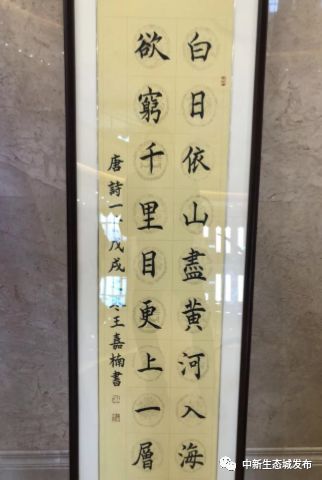 白日依山盡黄河入海
欲窮千里目更上一層
唐詩一戊戌冬王嘉楠書
中新生态城发布